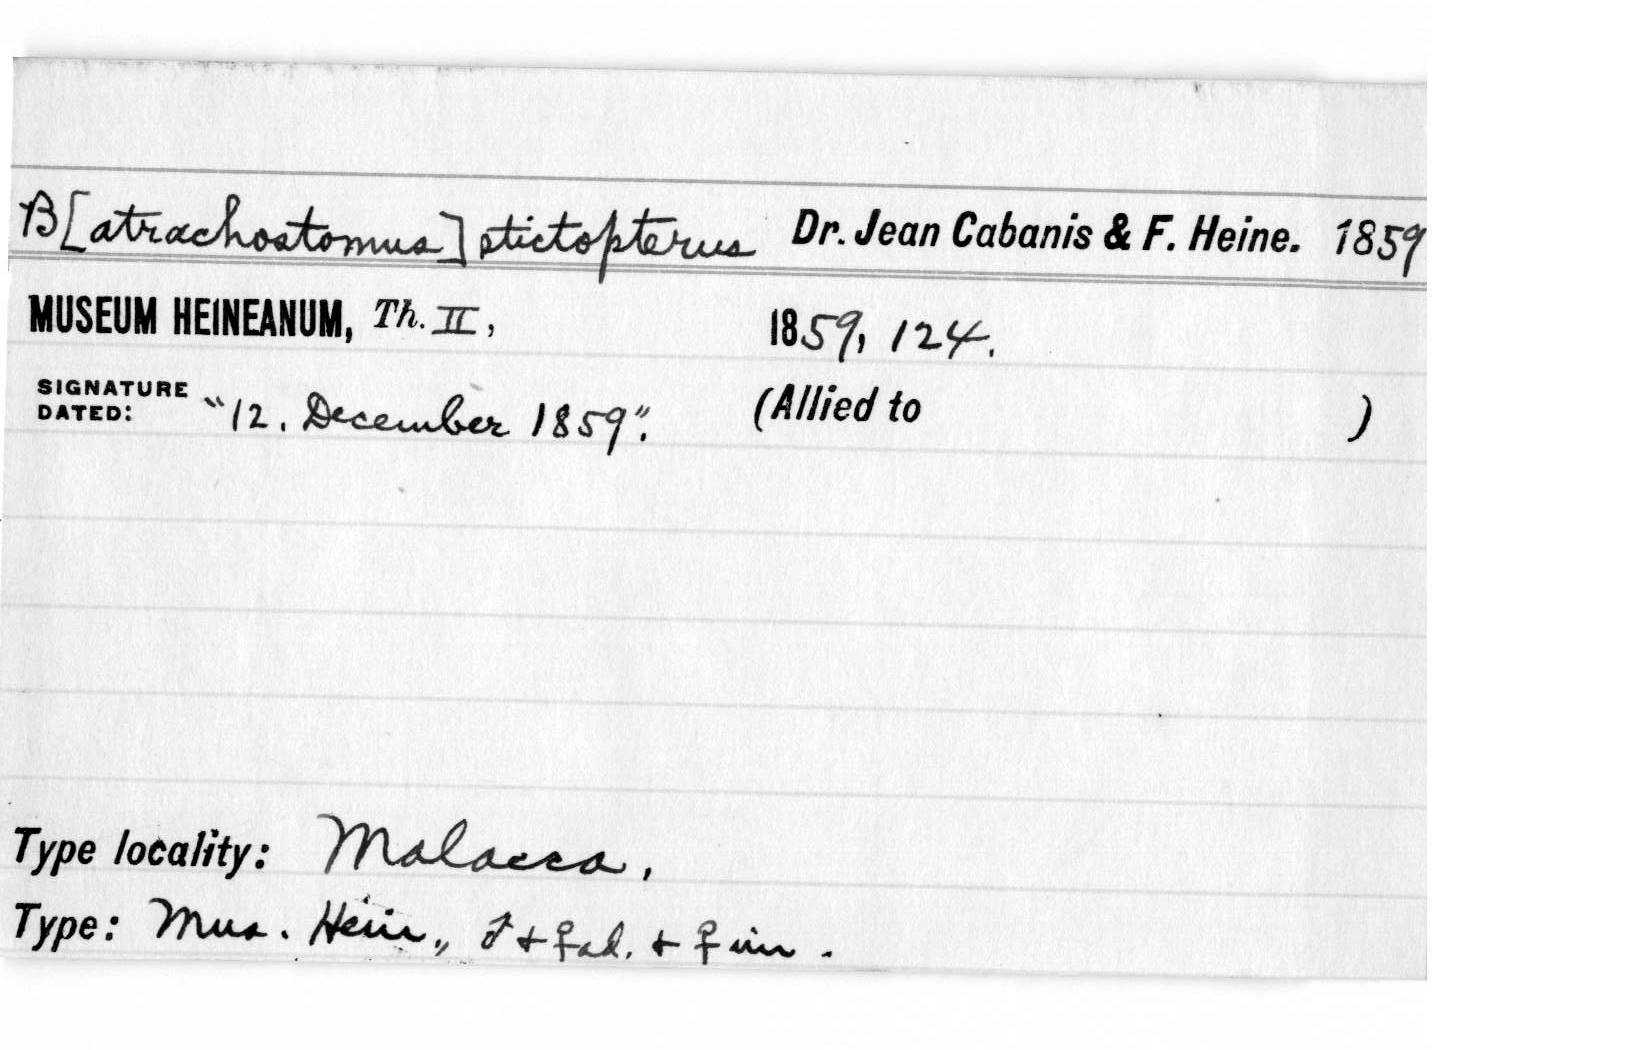 B[atrachostomus] stictopterus Dr. Jean Cabanis & F. Heine. 1859
MUSEUM HEINEANUM, Th. II, 1859, 124.
SIGNATURE DATED: "12. December 1859". (Allied to )
Type locality: Malacca,
Type: Mus. Hein., ♂ + ♀ ad. + ♀ im .